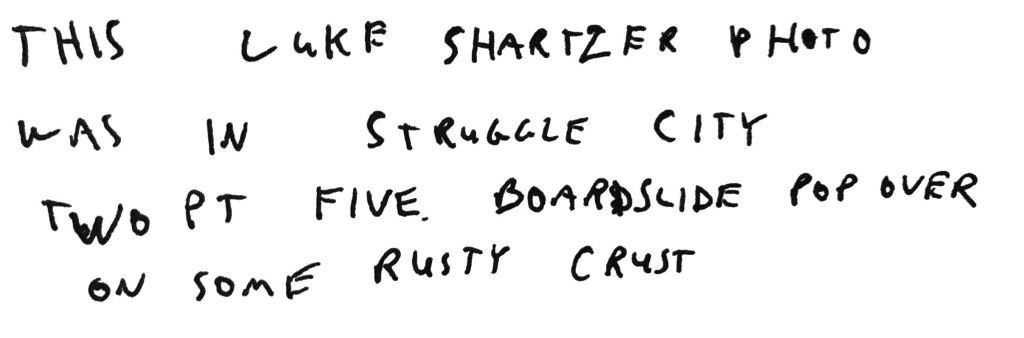 THIS LUKE SHARTZER PHOTO
WAS IN STRUGGLE CITY
TWO PT FIVE. BOARDSLIDE POP OVER
ON SOME RUSTY CRUST